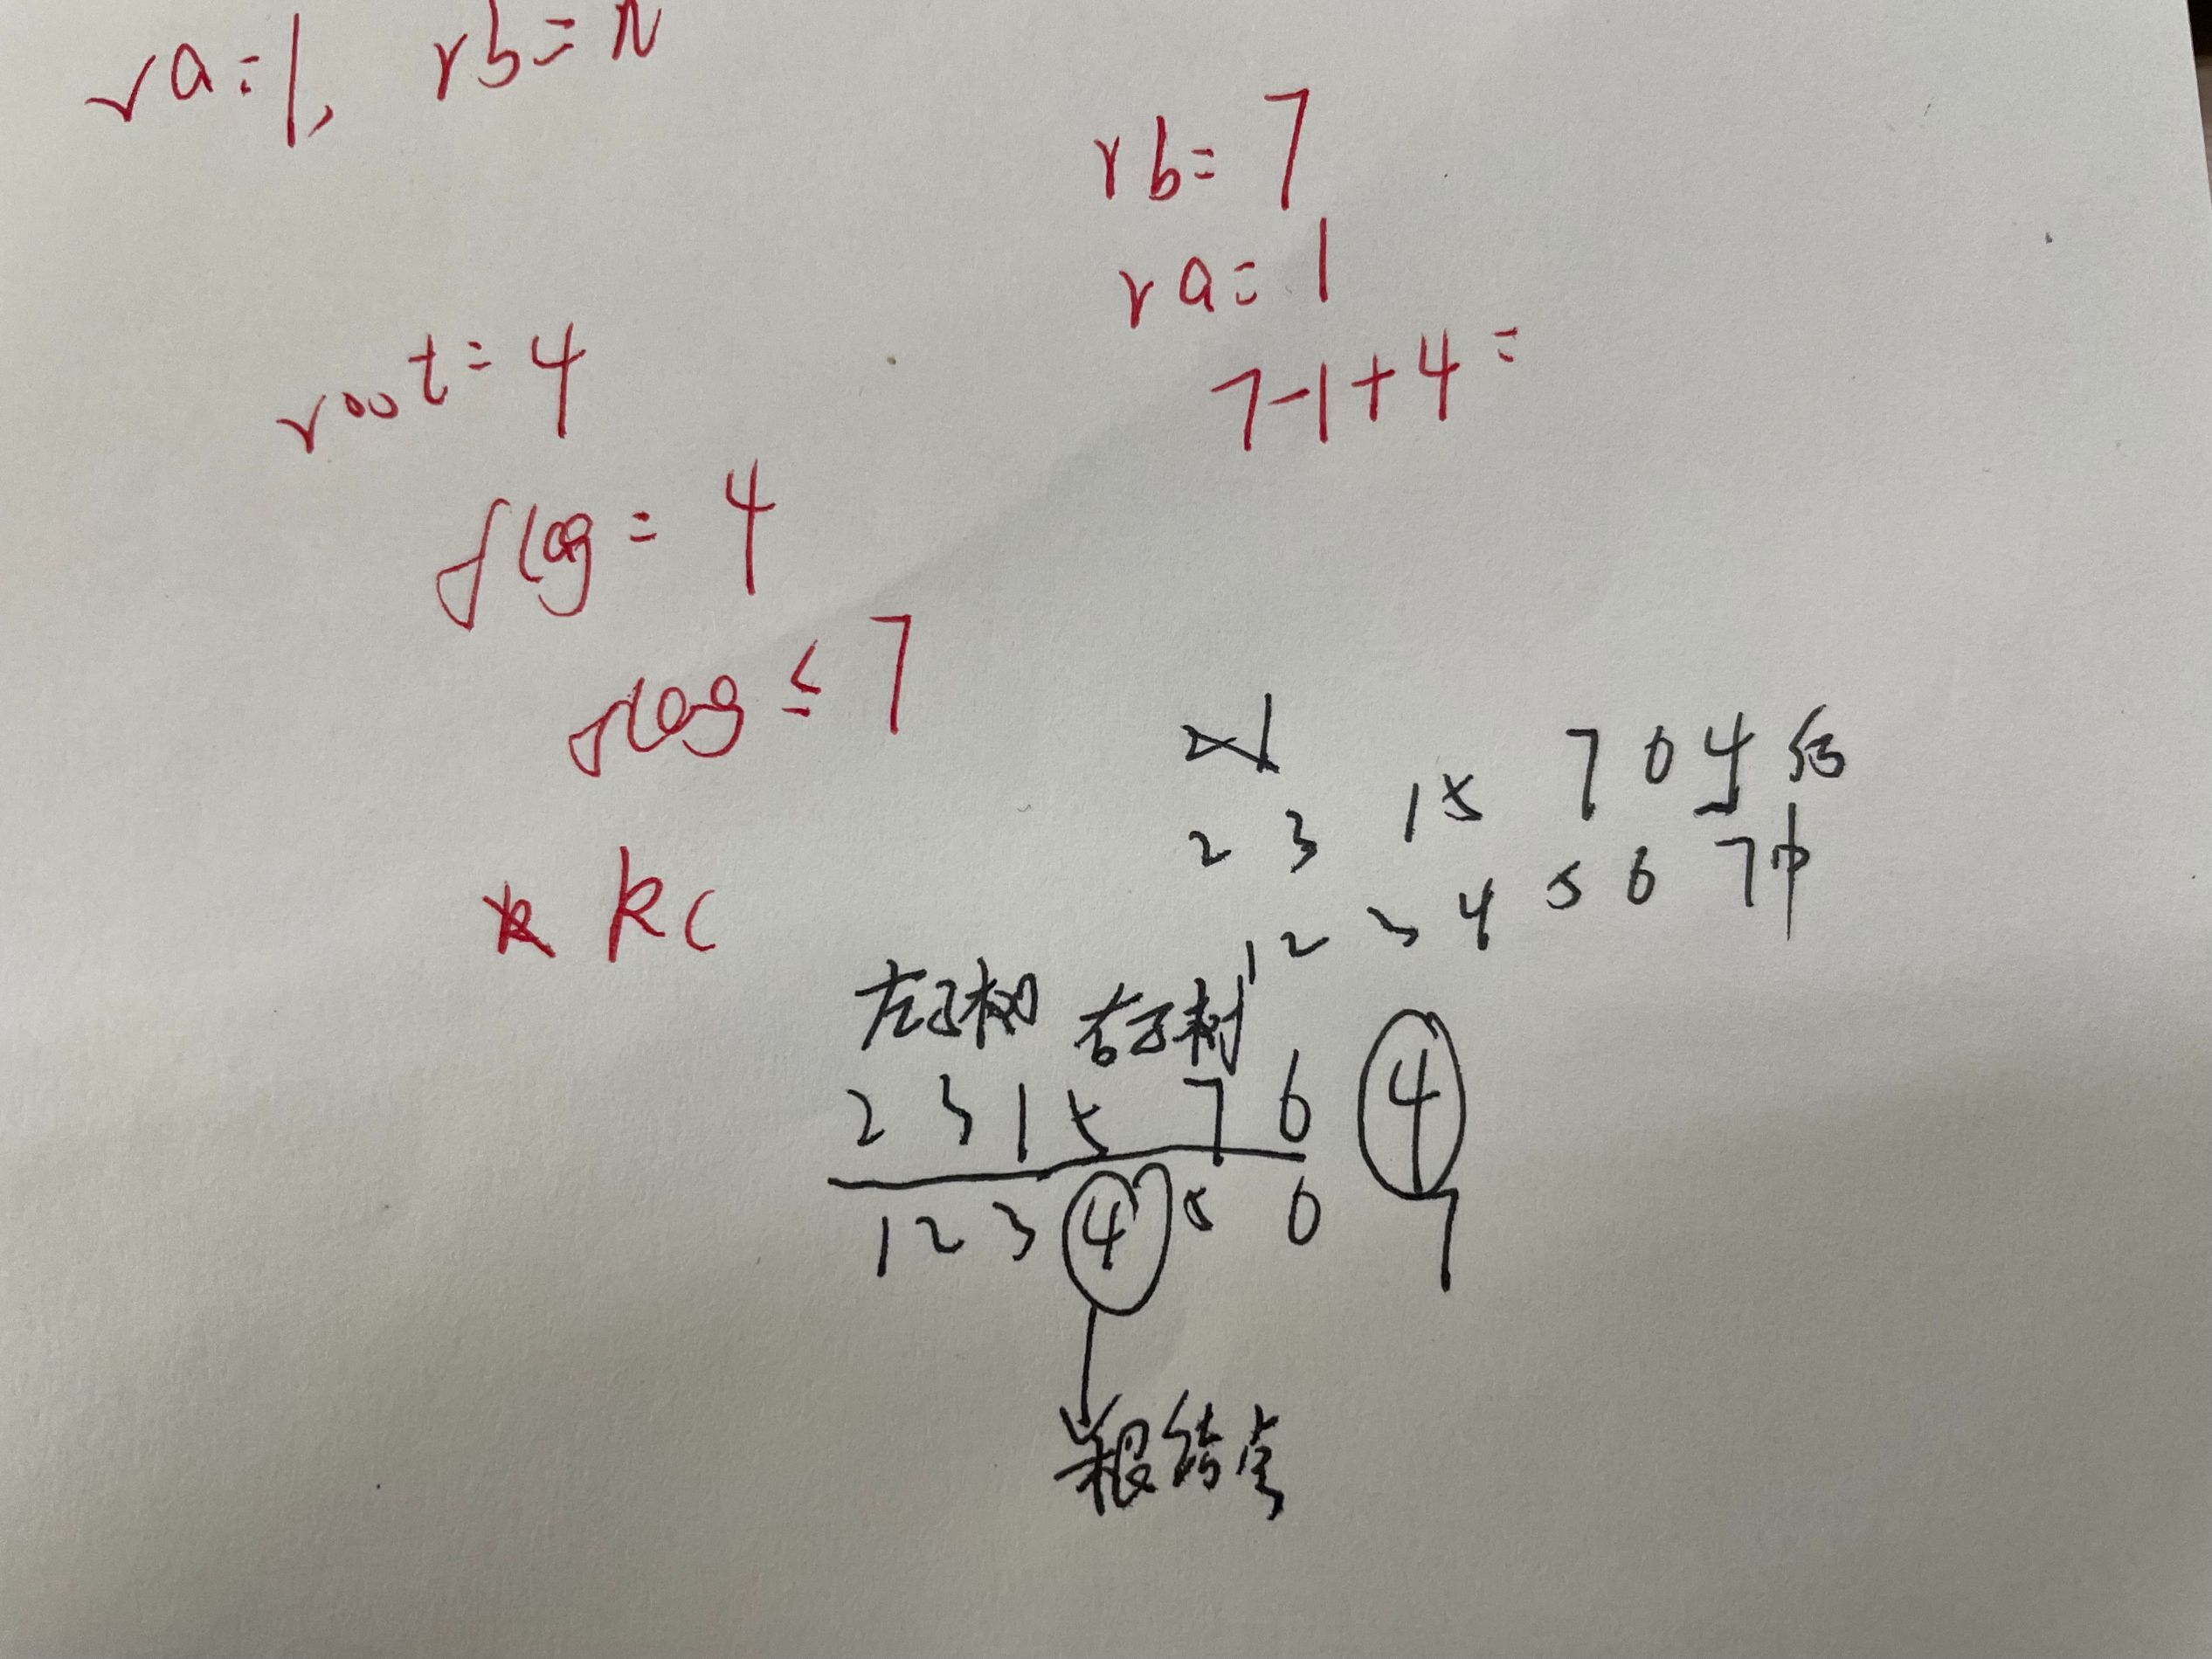 ra=1, rb=N
rb=7
ra=1
7-1+4=
root=4
flag=4
flag≤7
kc
2 3 1 5 7 6 4 后
1 2 3 4 5 6 7 中
左子树 右子树
2 3 1 5 7 6 4
1 2 3 4 5 6 7
根结点